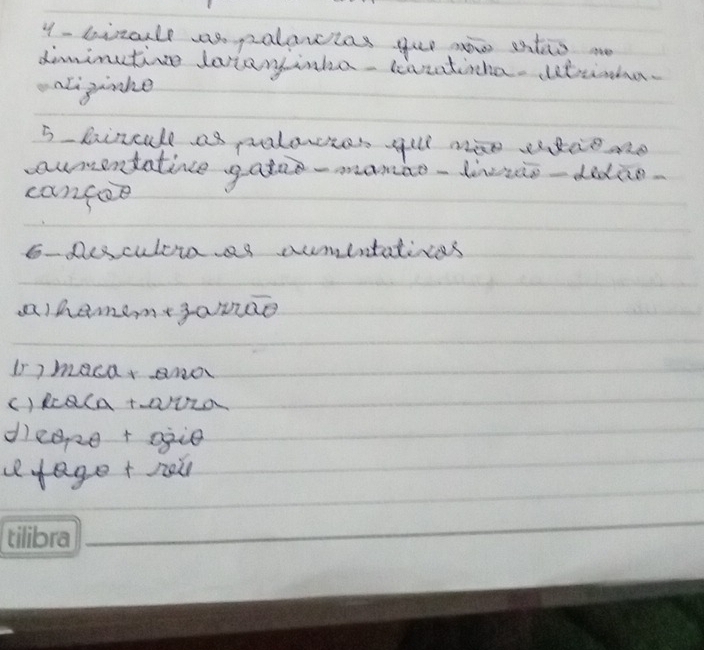 4- circule as palavras que não estão no
diminutivo laranjinha - baratinha - letrinha -
narizinho
5- circule as palavras que não estão no
aumentativo gatão - mamão - livrão - dedão -
canção
6- Descubra os aumentativos
a) homem + zarrão
b) moca + ona
c) boca + arra
d) copo + ázio
e fogo + réu
tilibra